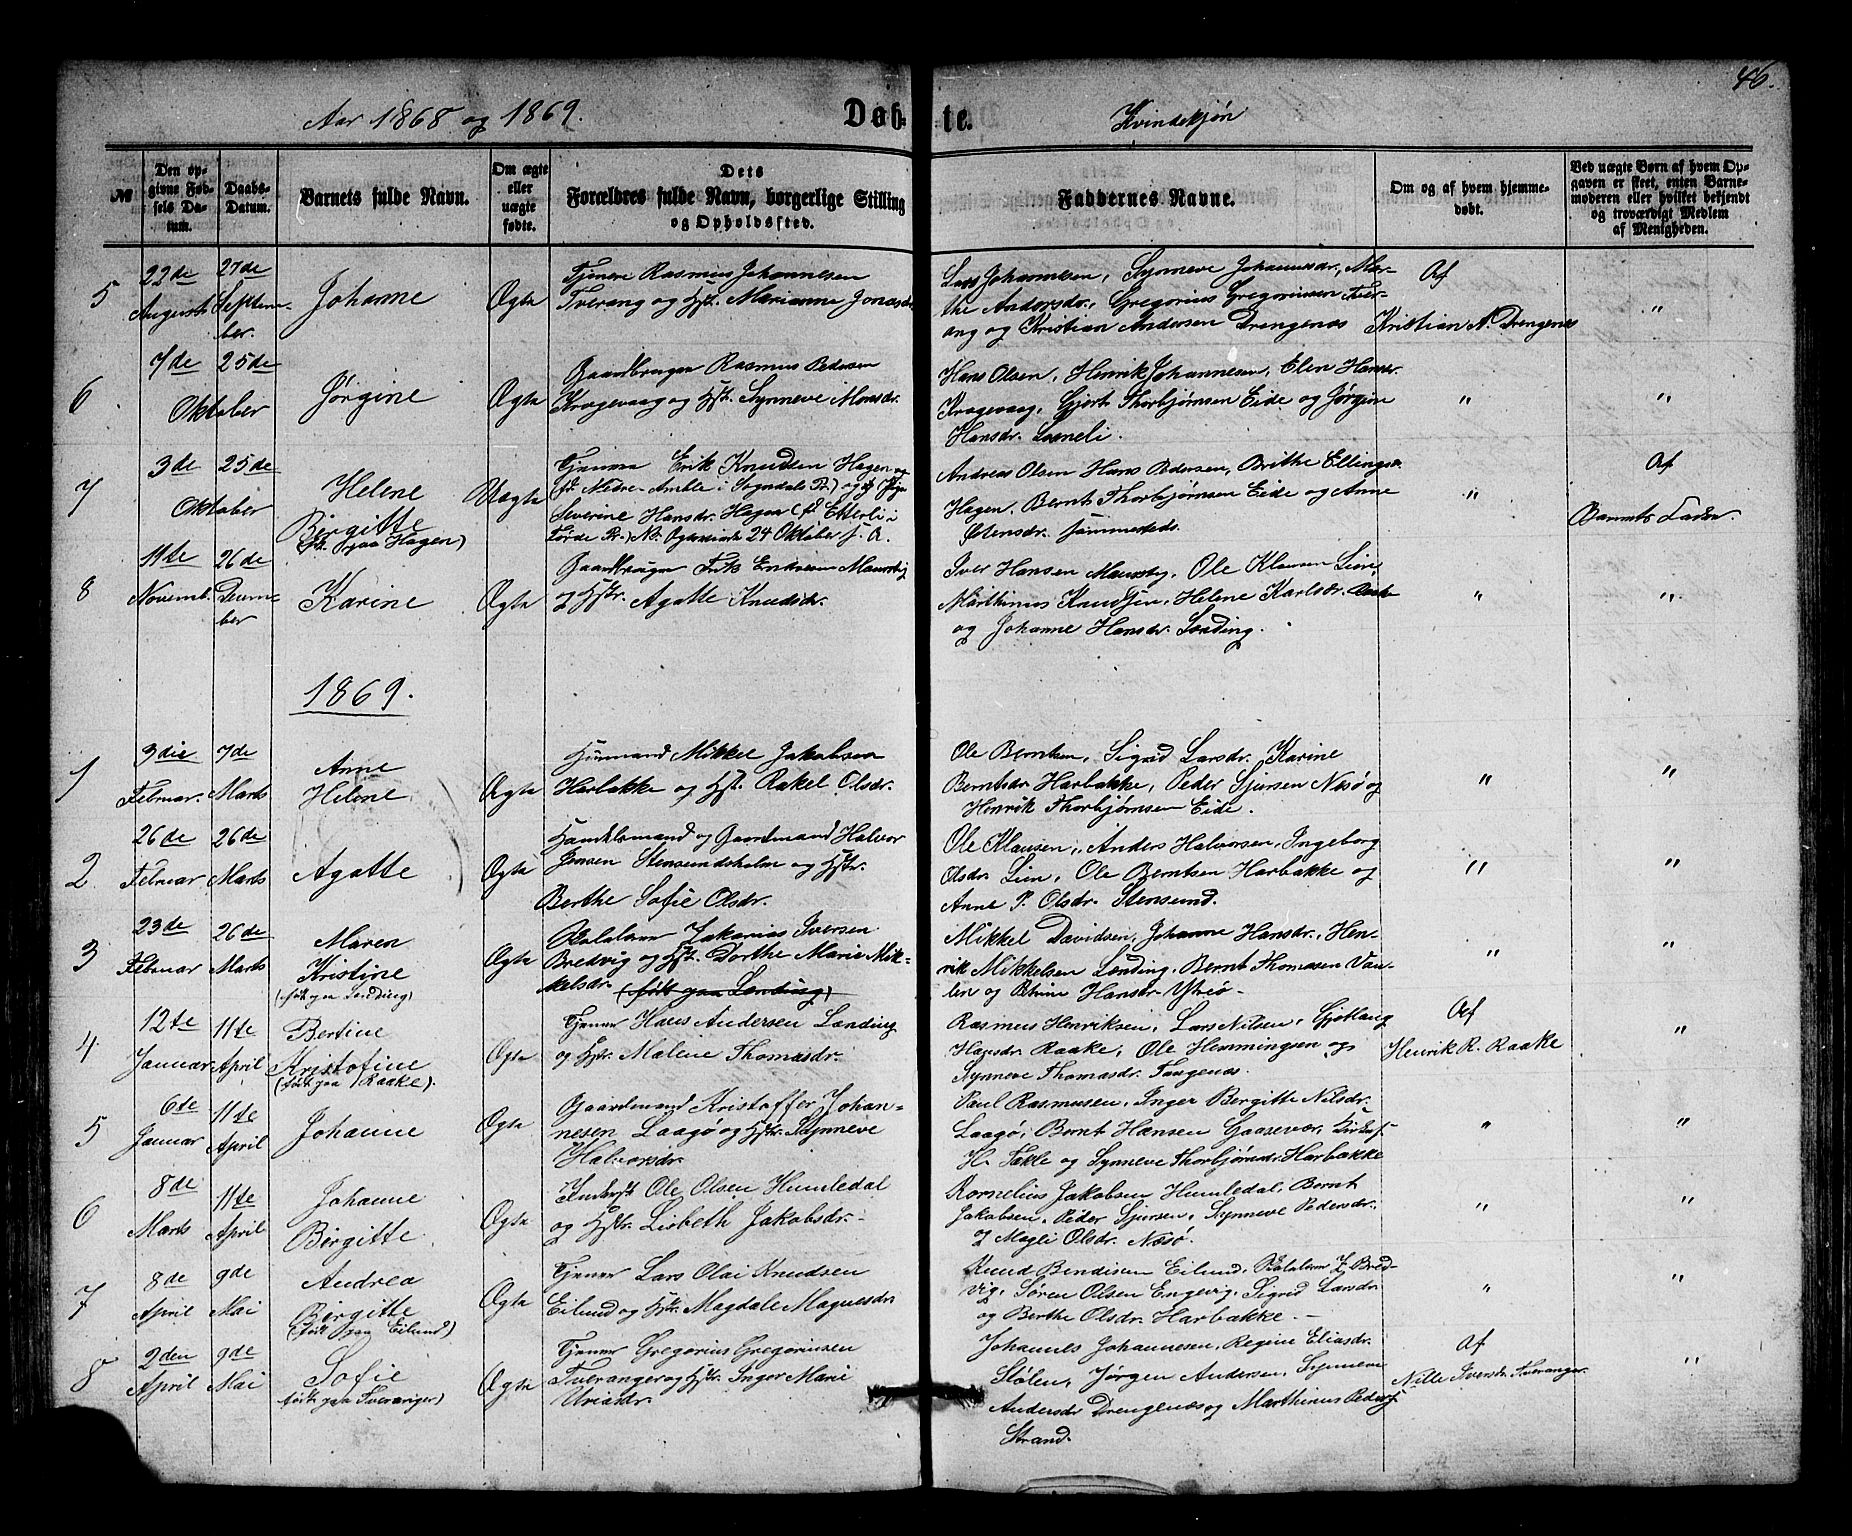 46.
Aar 1868 og 1869.
Døb-
te.
Kvindekjøn
№
Den op-
givne Fød-
sels Da-
tum.
Daabs-
Datum.
Barnets fulde Navn.
Om ægte
eller
uægte
fødte.
Dets
Forældres fulde Navn, borgerlige Stilling
og Opholdssted.
Faddernes Navne.
Om og af hvem hjemme-
døbt.
Ved uægte Børn af hvem Op-
gaven er skeet, enten Barne-
moderen eller hvilket bekjendt
og troværdigt Medlem
af Menigheden.
5
22de
August
27de
Septem-
ber.
Johanne
Ægte
Tjener Rasmus Johannesen
Tverang og Hst. Marianne Jonasdr
Lars Johannesen, Synneve Johannesdr, Mar-
the Andersdr., Gregorius Gregoriussen Tver-
ang og Kristian Andersen Drengenæs
Af
Kristian A. Drengenæs
"
6
7de
25de
Oktober
Jørgine
Ægte
Gaardbruger Rasmus Pedersen
Kragevaag og Hst. Synneve Monsdr.
Hans Olsen, Henrik Johannesen, Elen Hansdr.
Kragevaag, Gjert Thorbjørnsen Eide og Jørgine
Hansdr.
"
"
7
3de
25de
Oktober
Helene
Birgitte
(født paa Hagen)
Uægte
Tjener Erik Knudsen Hagen og
fd. Nedre-Amble i Sogndals P.) og Pige
Severine Hansdr. Hagen (fd Etterli i
Førde P.) 24 Oktober f. A.
Andreas Olsen Hans Pedersen, Brithe Ellingsdr.
Hagen, Bernt Thorbjørnsen Eide og Anne
Østensdr. sammesteds.
"
Af
Barnets Fader.
8
11te
Novemb.
26de
Decem-
ber
Karine
Ægte
Gaardbruger Eriksen
og Hstr. Agatte Knudsdr.
Iver Hansen, Ole Klausen Lien,
Marthinus Knudsen, Helene Karlsdr.
og Johanne Hansdr. Lending.
"
"
1869.
1
3die
Februar.
7de
Marts
Anne
Helene
Ægte
Husmand Mikkel Jakobsen
Harbakke og Hst. Rakel Olsdr.
Ole Berntsen, Sigrid Larsdr. Karine
Berntsdr Harbakke, Peder Sjursen Nesø og
Henrik Thorbjørnsen Eide.
"
"
2
26de
Februar
26de
Marts
Agatte
Ægte
Handelsmand og Gaardmand Halvor
Jensen Stensundsholm og Hstr.
Berthe Sofie Olsdr.
Ole Klausen, Anders Halvorsen, Ingeborg
Olsdr. Lien, Ole Berntsen Harbakke og
Anne P. Olsdr. Stensund.
"
"
3
23de
Februar
26de
Marts
Maren
Kristine
(født paa Lending)
Ægte
Zakarias Iversen
Bredvig og Hst. Dorthe Marie Mik-
kelsdr. (født paa Lending)
Mikkel Davidsen, Johanne Hansdr., Hen-
rik Mikkelsen Lending, Bernt Thomasen Van-
len og Hansdr. Ytrø.
"
"
4
12te
Januar
11te
April
Bertine
Kristofine
(født paa Raake).
Ægte
Tjener Hans Andersen Lending
og Hstr. Malene Thomasdr.
Rasmus Henriksen, Lars Nilsen, Gjetlaug
Hansdr. Raake, Ole Hemmingsen og
Synneve Thomasdr. Tangenæs.
Af
Henrik R. Raake
"
5
6te
Januar
11te
April
Johanne
Ægte
Gaardmand Kristoffer Johan-
nesen Laagø og Hstr. Synneve
Halvorsdr.
Paul Rasmusen, Inger Bergitte Nilsdr.
Laagø, Bernt Hansen Gaasevær,
H. Takle og Synneve Thorbjørnsdr. Harbakke
"
"
6
8de
Marts
11te
April
Johanne
Birgitte
Ægte
Inderst Ole Olsen Humledal
og Hstr. Lisbeth Jakobsdr.
Kornelius Jakobsen Humledal, Bernt
Jakobsen, Peder Sjursen, Synneve Pedersdr.
og Magli Olsdr. Næsø.
"
"
7
8de
April
9de
Mai
Andrea
Birgitte
(født paa Eilund)
Ægte
Tjener Lars Olai Knudsen
Eilund og Hstr. Magdale Magnesdr.
Knud Bendiksen Eilund, Z. Bred-
vig, Søren Olsen Engevig, Sigrid Larsdr.
og Berthe Olsdr. Harbakke.
"
"
8
2den
April
9de
Mai
Sofie
(født paa Tveranger)
Ægte
Tjener Gregorius Gregoriusen
Tveranger og Hstr. Inger Marie
Uriasdr.
Johannes Johannesen, Regine Eliasdr.
Stølen, Jørgen Andersen, Synneve
Andersdr Drengenæs og Marthinus Peders.
Strand.
Af
Nille Iversdr. Tveranger.
"